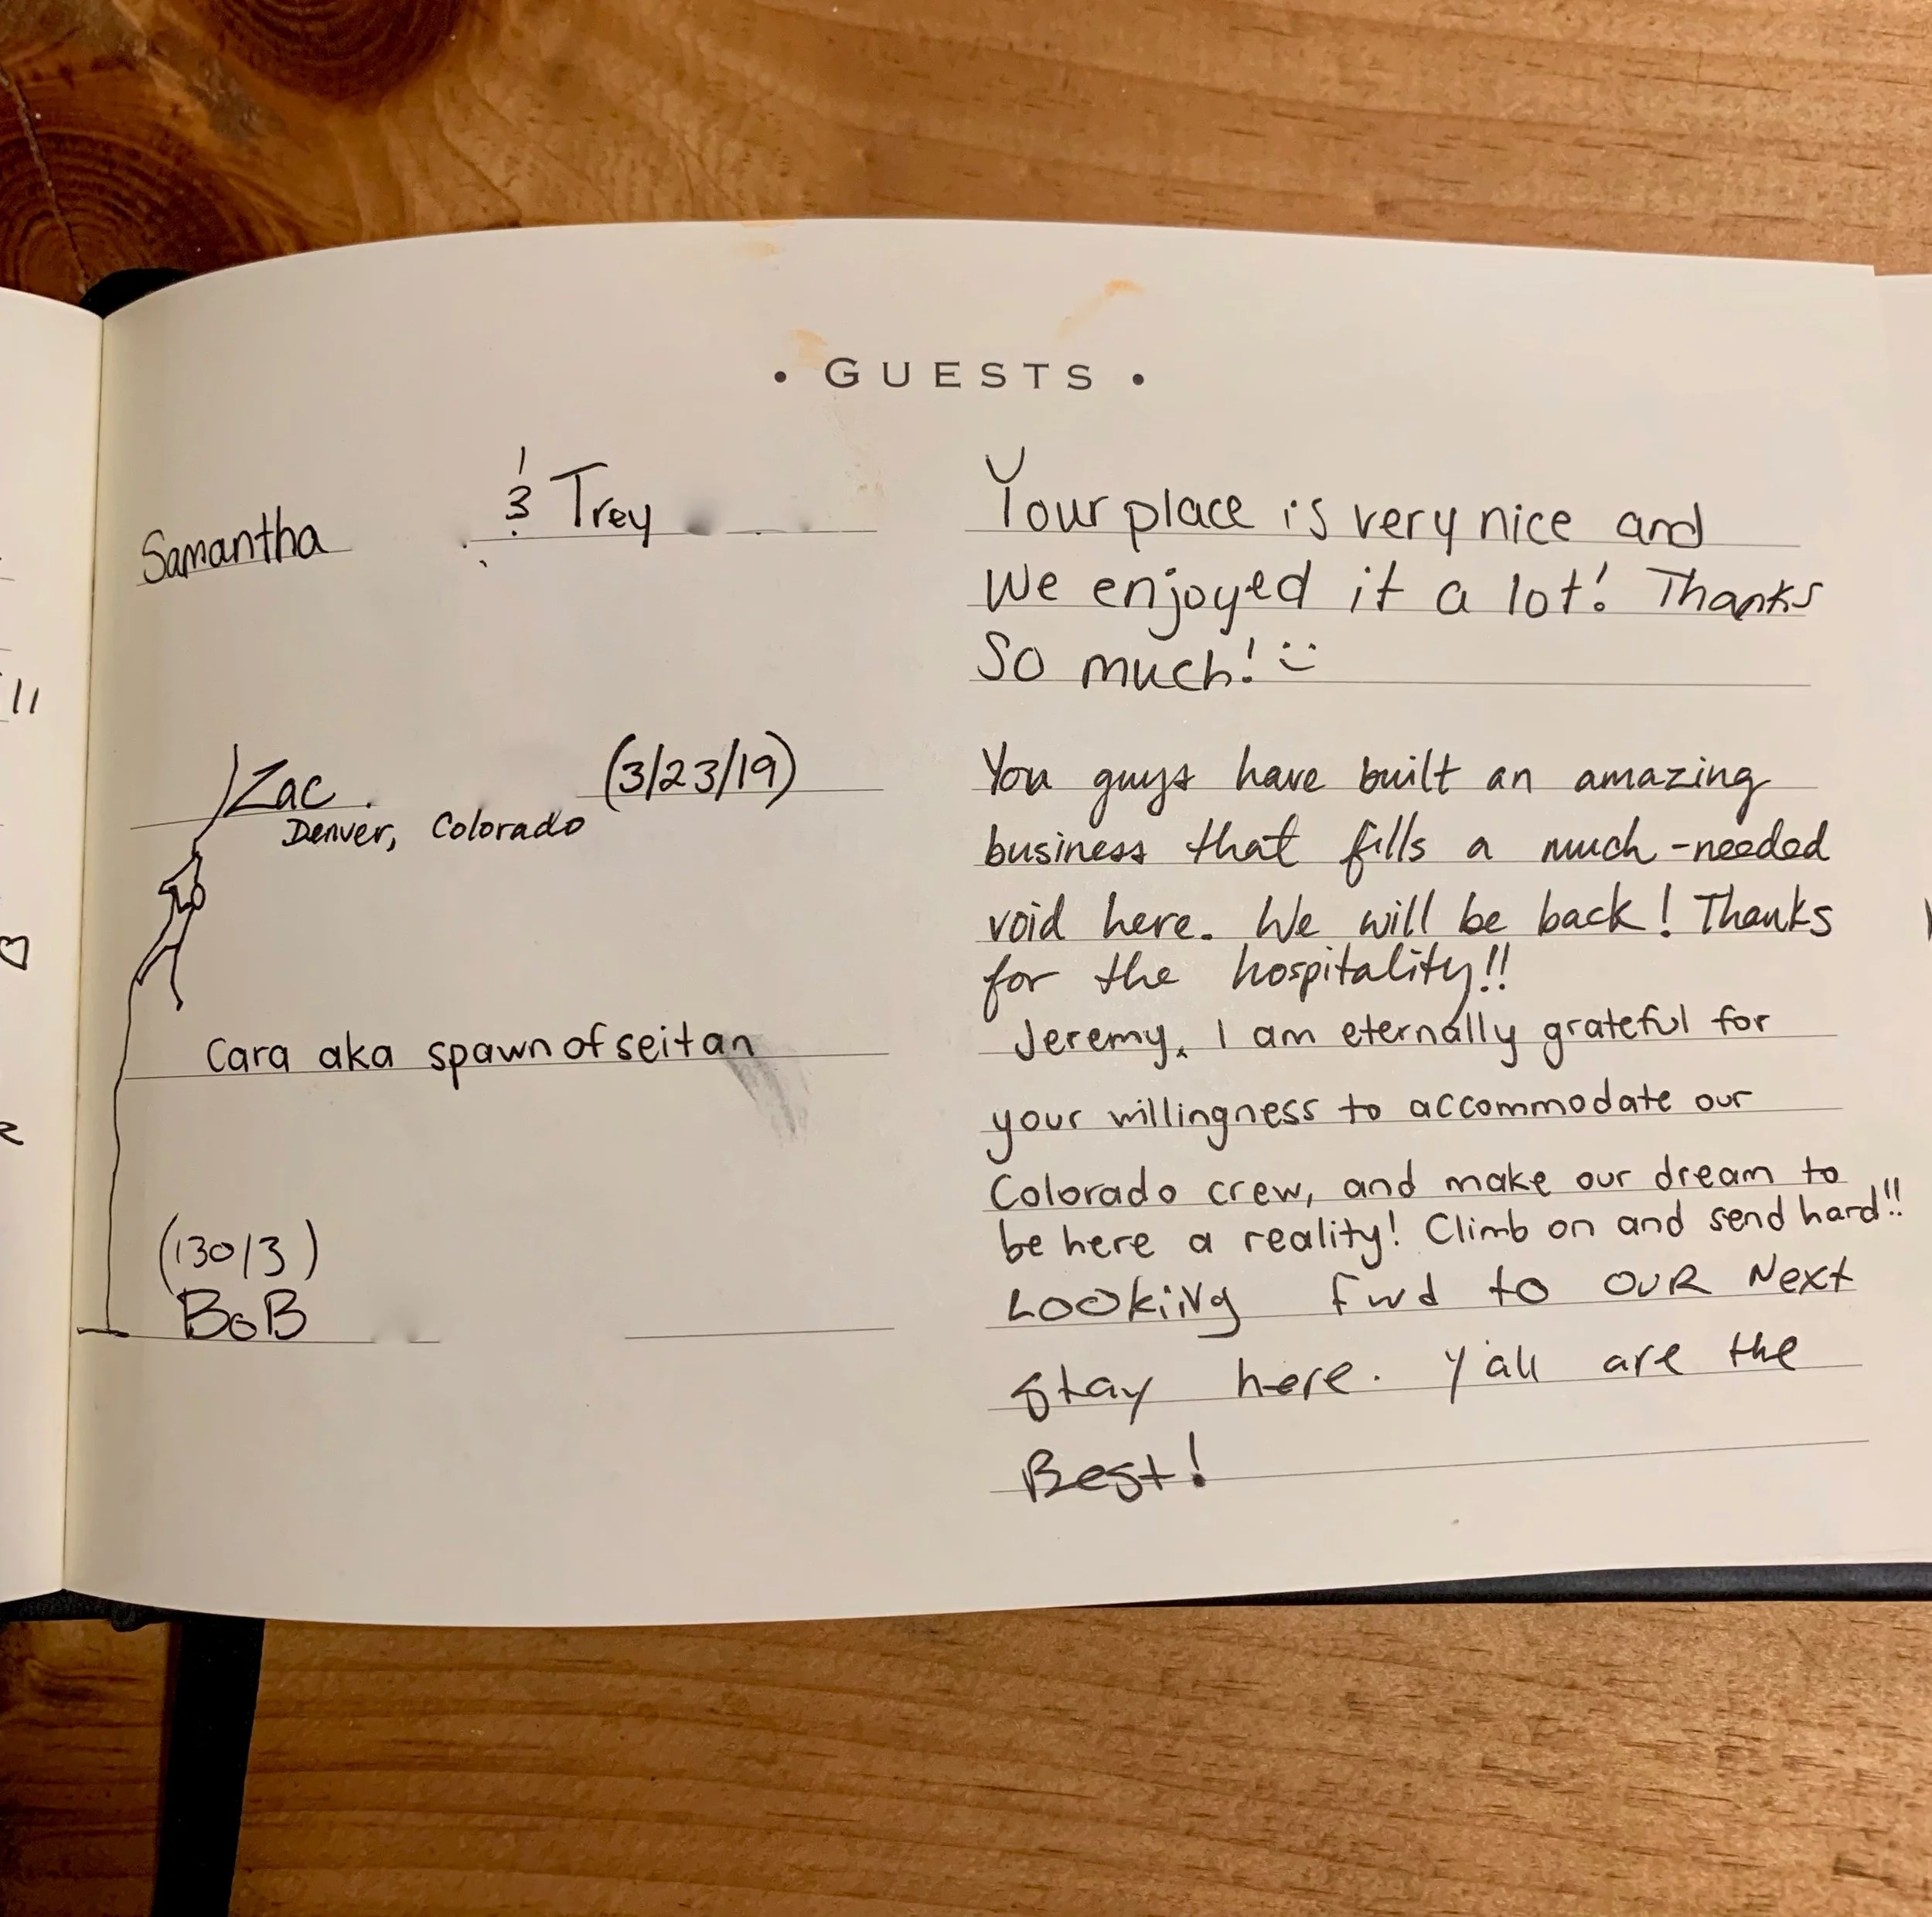 • GUESTS •
Samantha & Trey
Your place is very nice and
We enjoyed it a lot! Thanks
So much! :)
Zac (3/23/19)
Denver, Colorado
You guys have built an amazing
business that fills a much-needed
void here. We will be back! Thanks
for the hospitality!!
Cara aka spawnofseitan
Jeremy, I am eternally grateful for
your willingness to accommodate our
Colorado crew, and make our dream to
be here a reality! Climb on and send hard!!
(130/3)
BoB
Looking fwd to our Next
Stay here. Y'all are the
Best!